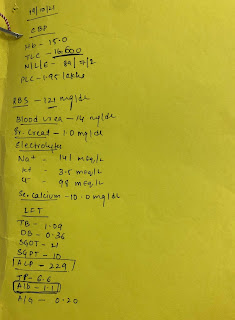 19/10/21
CBP
Hb - 15.0
TLC - 16600
N/L/E - 89/7/2
PLC - 1.95 lakhs
RBS - 121 mg/dl
Blood urea - 14 mg/dl
Sr. Creat - 1.0 mg/dl
Electrolyte
Na+ - 141 mEq/L
K+ - 3.5 mEq/L
Cl- - 98 mEq/L
Se. calcium - 10.0 mg/dl
LFT
TB - 1.09
DB - 0.36
SGOT - 21
SGPT - 10
ALP - 229
TP - 6.6
Alb - 1.1
A/G - 0.20